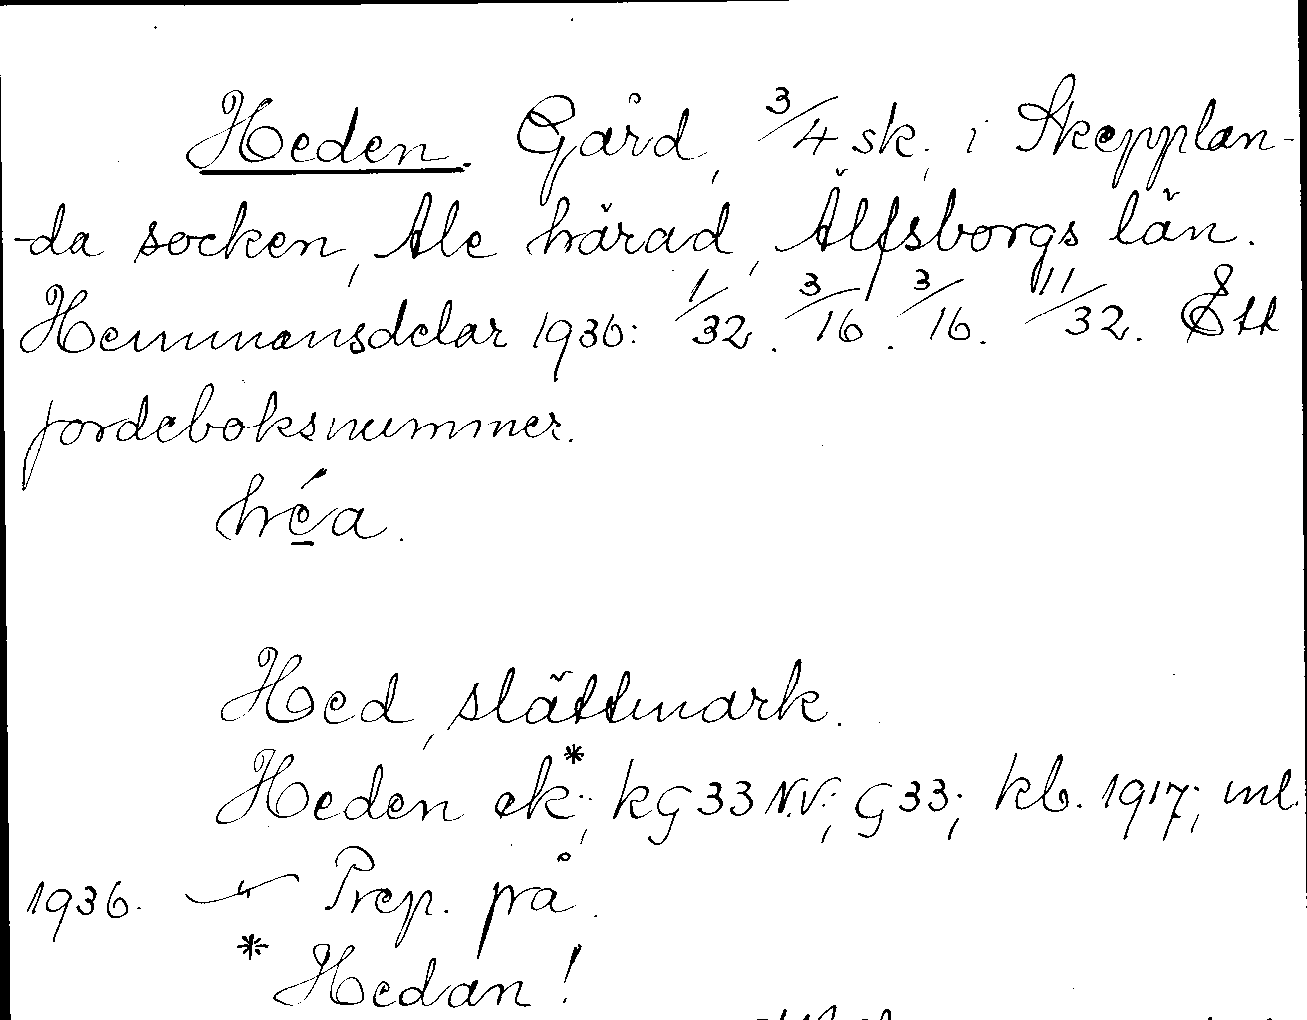 Heden. Gård, 3/4 sk. i Skepplan-
-da socken, Ale härad, Älfsborgs län.
Hemmansdelar 1936: 1/32. 3/16. 3/16. 11/32. Ett
jordeboksnummer.
héa.
Hed, slättmark.
Heden ek*; kG33 N.V.; G33; kb. 1917; ml.
1936. —"— Prep. på.
* Hedan!